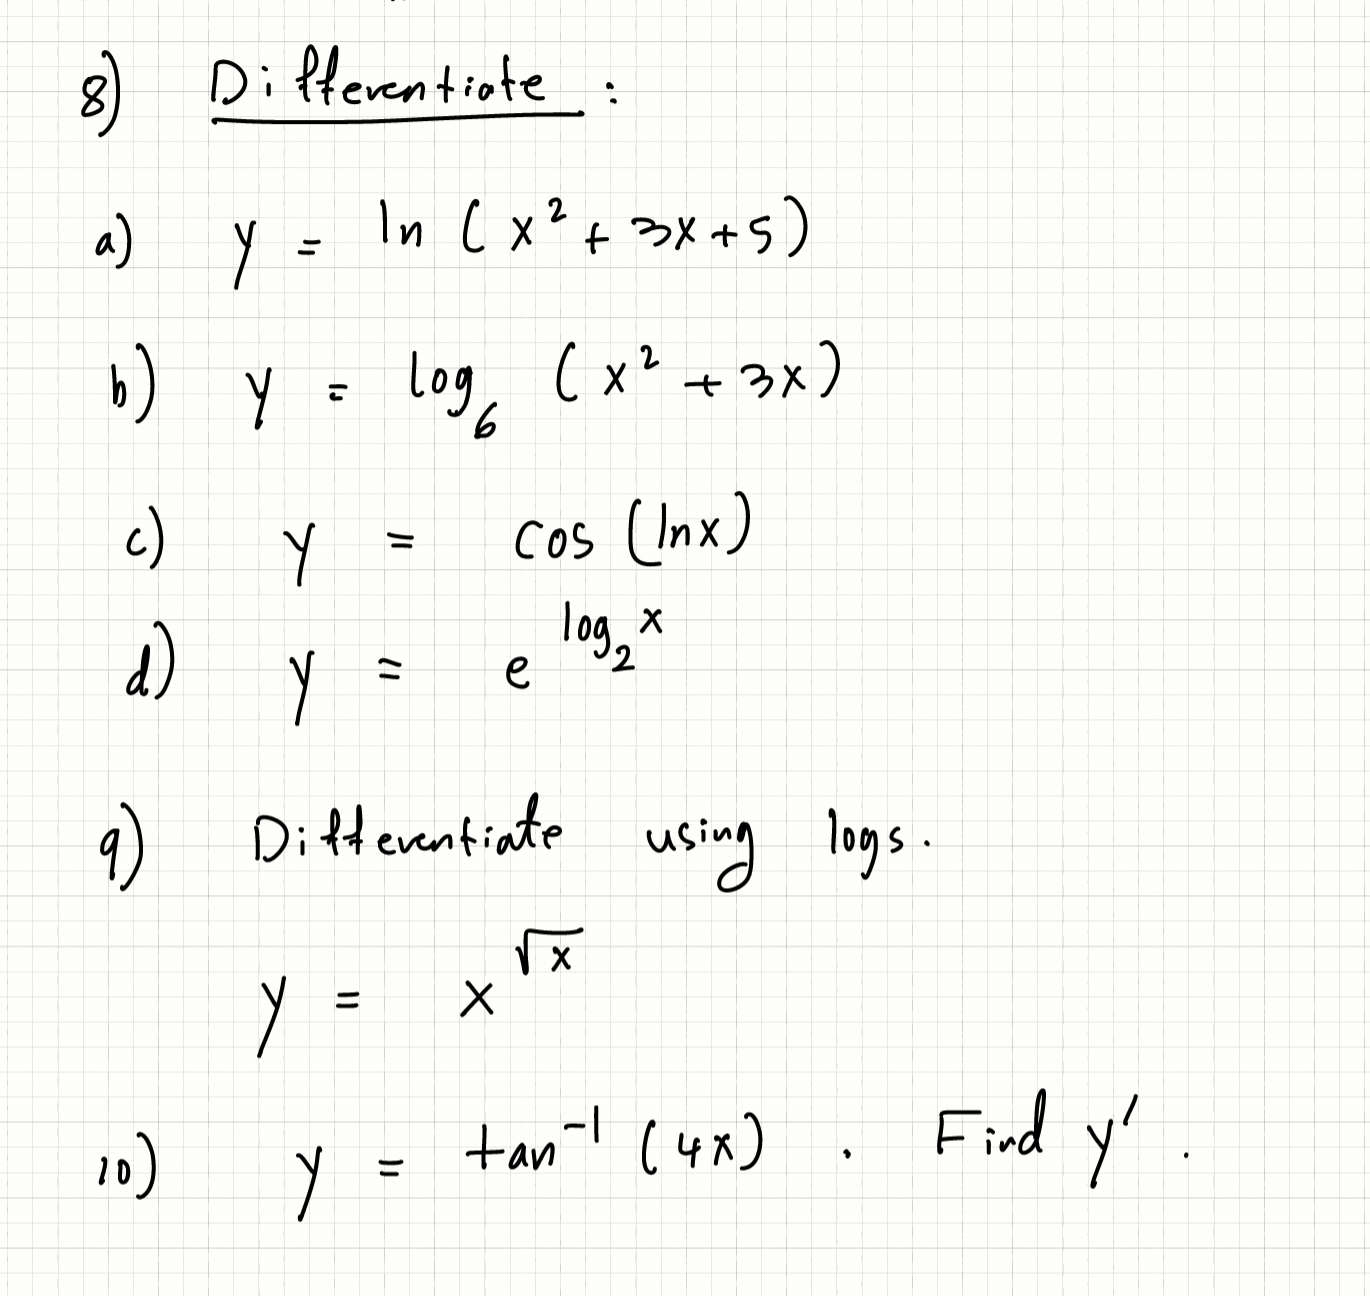 8) Differentiate :
a) y = ln ( x² + 3x + 5 )
b) y = log₆ ( x² + 3x )
c) y = cos (lnx)
d) y = e^(log₂ x)
9) Differentiate using logs.
y = x^√x
10) y = tan⁻¹ (4x) . Find y' .